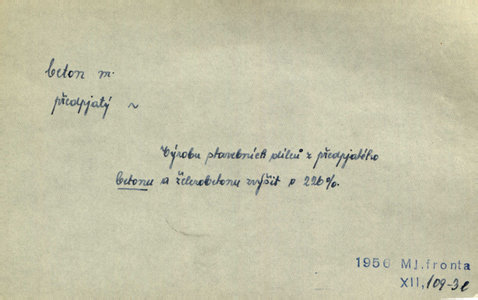 beton m.
předpjatý ~
Výrobu stavebních dílců z předpjatého
betonu a železobetonu zvýšit o 226%.
1956 Ml.fronta
XII,/09-3c